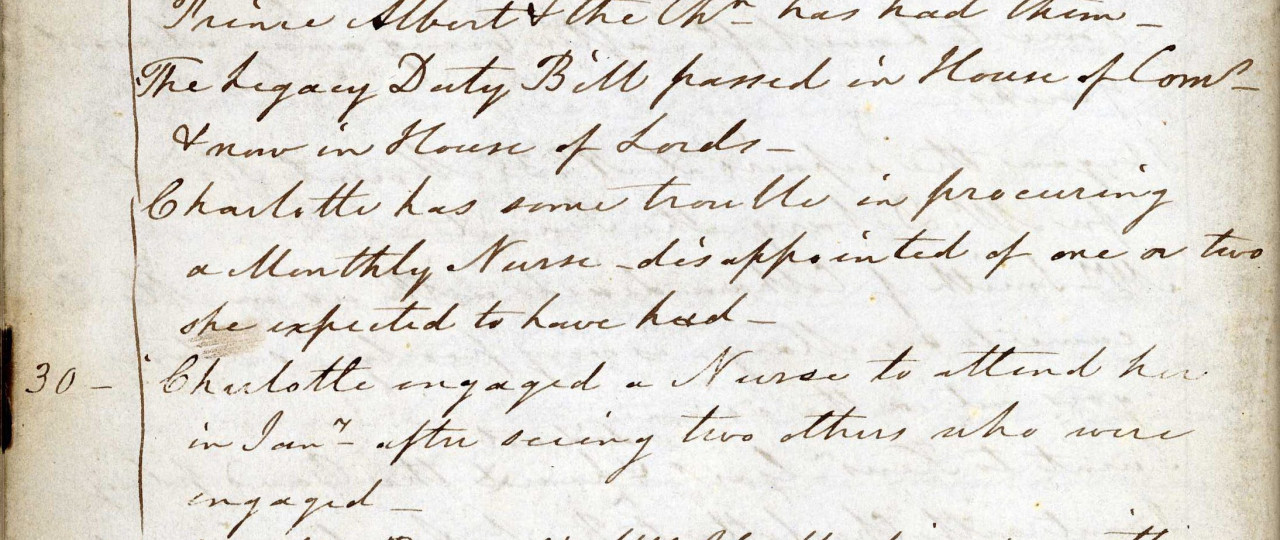 Prince Albert & the Chn has had them –
The Legacy Duty Bill passed in House of Coms –
& now in House of Lords –
Charlotte has some trouble in procuring
a Monthly Nurse – disappointed of one or two
she expected to have had –
30 – Charlotte engaged a Nurse to attend her
in Jany – after seeing two others who were
engaged –